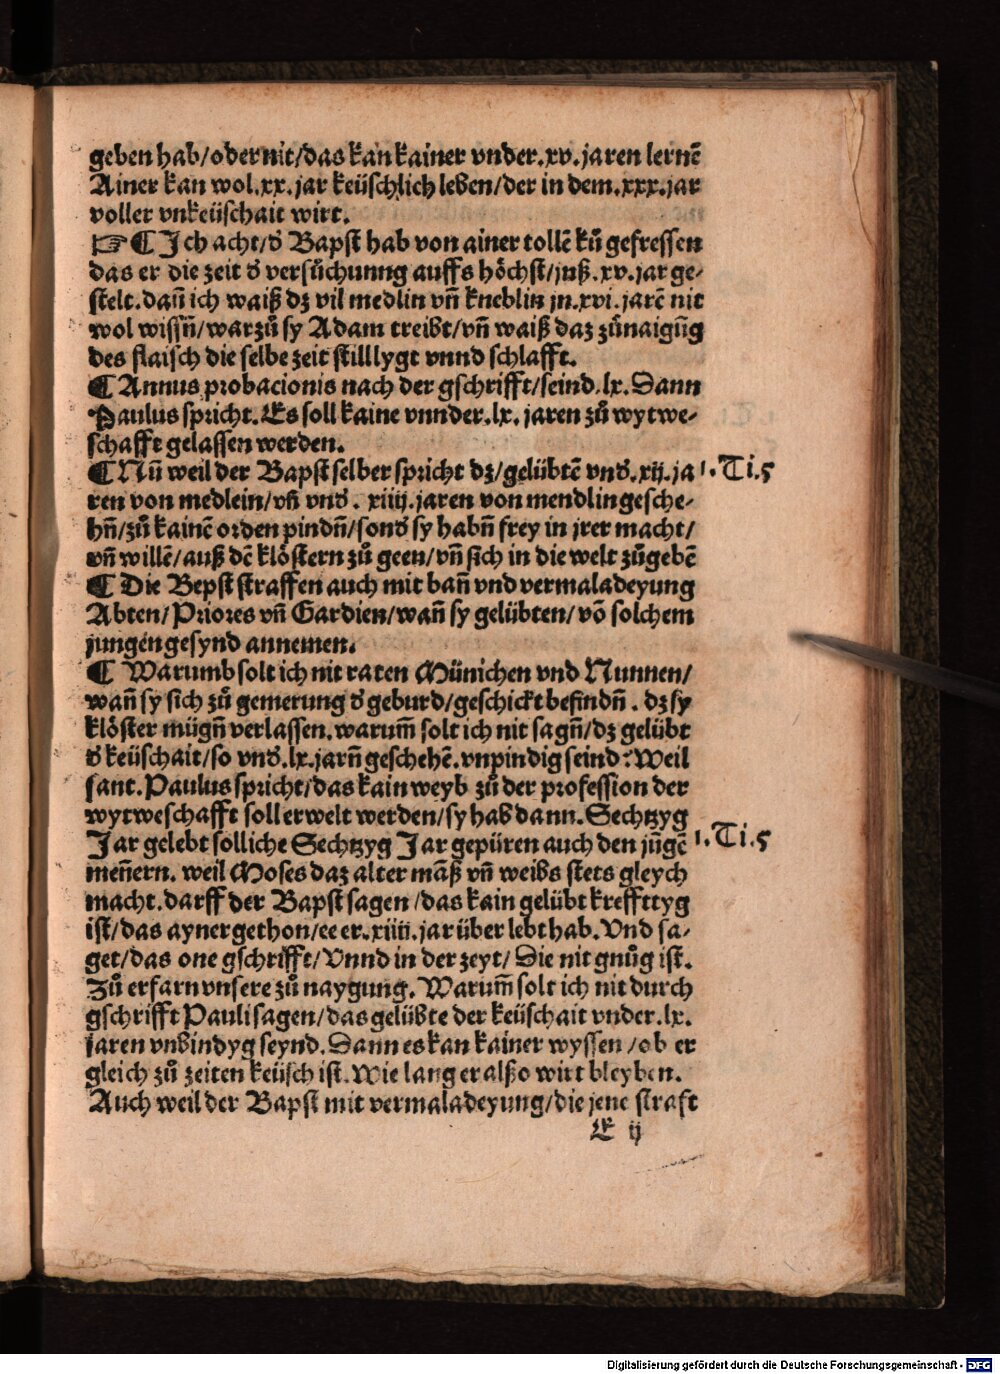 geben hab/oder nit/das kan kainer vnder.xv.jaren lernē
Ainer kan wol.xx.jar keüschlich leben/der in dem.xxx.jar
voller vnkeüschait wirt.
☞ ¶ Ich acht/d̕ Bapst hab von ainer tollē ků gefressen
das er die zeit d̕ versůchunng auffs höchst/juß.xv.jar ge⸗
stelt.dañ ich waiß dz vil medlin vñ kneblin jn.xvi.jarē nit
wol wissn̄/warzů sy Adam treibt/vñ waiß daz zůnaigūg
des flaisch die selbe zeit still lygt vnnd schlafft.
¶ Annus probacionis nach der gschrifft/seind.lx. Dann
Paulus spricht. Es soll kaine vnnder.lx. jaren zů wytwe⸗
schafft gelassen werden.
¶ Nū weil der Bapst selber spricht dz/gelübtē vnd̕.xij.ja
1.Ti.5
ren von medlein/vñ vnd̕. xiiij.jaren von mendlin gesche⸗
hn̄/zů kainē orden pindn̄/sond̕ sy habn̄ frey in jrer macht/
vñ willē/auß dē klöstern zů geen/vñ sich in die welt zůgebē
¶ Die Bepst straffen auch mit bañ vnd vermaladeyung
Abten/Priores vñ Gardien/wañ sy gelübten/vō solchem
jungen gesynd annemen.
¶ Warumb solt ich nit raten Münichen vnd Nunnen/
wañ sy sich zů gemerung d̕ geburd/geschickt befindn̄. dz sy
klöster mügn̄ verlassen.warum̄ solt ich nit sagn̄/dz gelübt
d̕ keüschait/so vnd̕.lx.jarn̄ geschehē.vnpindig seind? Weil
sant. Paulus spricht/das kain weyb zů der profession der
wytweschafft soll erwelt werden/sy hab dann. Sechtzyg
Jar gelebt solliche Sechtzyg Jar gepüren auch den jūgē
1.Ti.5
meñern. weil Moses daz alter māß vñ weibs stets gleych
macht.darff der Bapst sagen/das kain gelübt kreffttyg
ist/das ayner gethon/ee er.xiiij.jar über lebt hab. Vnd sa⸗
get/das one gschrifft/Vnnd in der zeyt/Die nit gnůg ist.
Zů erfarn vnsere zů naygung. Warum̄ solt ich nit durch
gschrifft Pauli sagen/das gelübte der keüschait vnder.lx.
jaren vnbindyg seynd. Dann es kan kainer wyssen/ob er
gleich zů zeiten keüsch ist. Wie lang er alßo wirt bleyben.
Auch weil der Bapst mit vermaladeyung/die jene straft
E ij
Digitalisierung gefördert durch die Deutsche Forschungsgemeinschaft - DFG